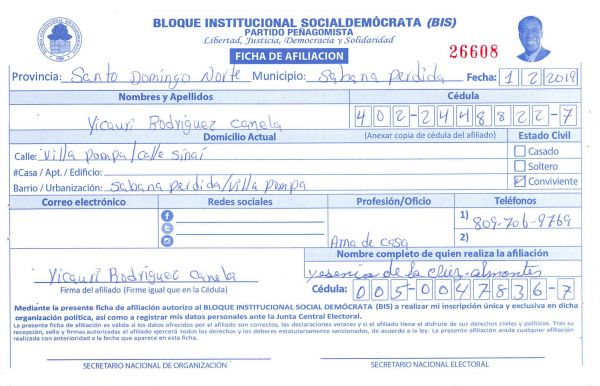 BLOQUE INSTITUCIONAL SOCIALDEMÓCRATA (BIS)
PARTIDO PEÑAGOMISTA
Libertad, Justicia, Democracia y Solidaridad
FICHA DE AFILIACION
26608
Provincia: Santo Domingo Norte Municipio: Sabana Perdida Fecha: 1 2 2019
Nombres y Apellidos Cédula
Yicauri Rodriguez Canela 402-2448822-7
Domicilio Actual (Anexar copia de cédula del afiliado) Estado Civil
Calle: Villa Pompa/calle sinaí Casado
#Casa / Apt. / Edificio: Soltero
Barrio / Urbanización: Sabana perdida/Villa Pompa Conviviente
Correo electrónico Redes sociales Profesión/Oficio Teléfonos
1) 809-706-9769
Ama de casa 2)
Nombre completo de quien realiza la afiliación
Yicauri Rodriguez Canela yesenia de la cruz almontes
Firma del afiliado (Firme igual que en la Cédula) Cédula: 005-0047836-7
Mediante la presente ficha de afiliación autorizo al BLOQUE INSTITUCIONAL SOCIAL DEMÓCRATA (BIS) a realizar mi inscripción única y exclusiva en dicha
organización política, así como a registrar mis datos personales ante la Junta Central Electoral.
La presente ficha de afiliación es válida si los datos ofrecidos por el afiliado son correctos, las declaraciones veraces y si el afiliado tiene el disfrute de sus derechos civiles y políticos. Tras su
recepción, sello y firmas autorizadas el afiliado ejercerá todos los derechos y los deberes estatutariamente sancionados, de acuerdo a la ley. La presente afiliación anula cualquier afiliación
realizada con anterioridad a la fecha que aparece en esta ficha.
SECRETARIO NACIONAL DE ORGANIZACIÓN SECRETARIO NACIONAL ELECTORAL